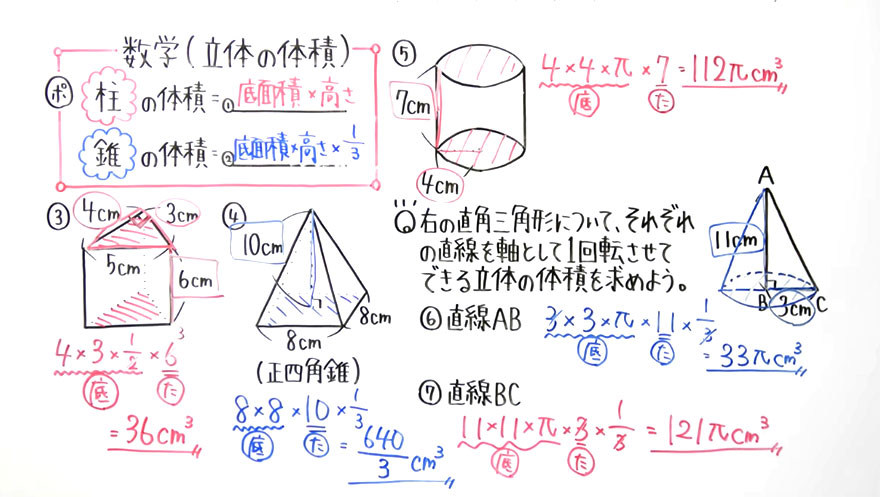 数学(立体の体積)
ポ 柱 の体積=① 底面積×高さ
錐 の体積=② 底面積×高さ×1/3
③ 4cm 3cm
5cm
6cm
4×3×1/2×6 3
底 た
=36cm³
④ 10cm
8cm
8cm
(正四角錐)
8×8×10×1/3
底 た
=640/3 cm³
⑤ 7cm
4cm
4×4×π×7=112πcm³
底 た
Q 右の直角三角形について、それぞれ
の直線を軸として1回転させて
できる立体の体積を求めよう。
A
11cm
B 3cm C
⑥ 直線AB 3×3×π×11×1/3
底 た
=33πcm³
⑦ 直線BC
11×11×π×3×1/3=121πcm³
底 た